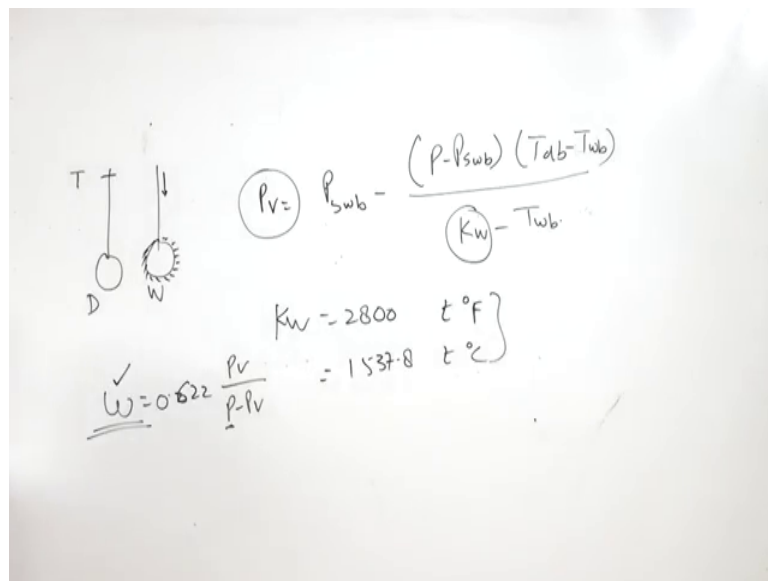 T
D
W
Pv = Pswb - (P-Pswb) (Tdb-Twb) / Kw - Twb.
Kw = 2800 t °F
= 1537.8 t °C
ω = 0.622 Pv / P-Pv